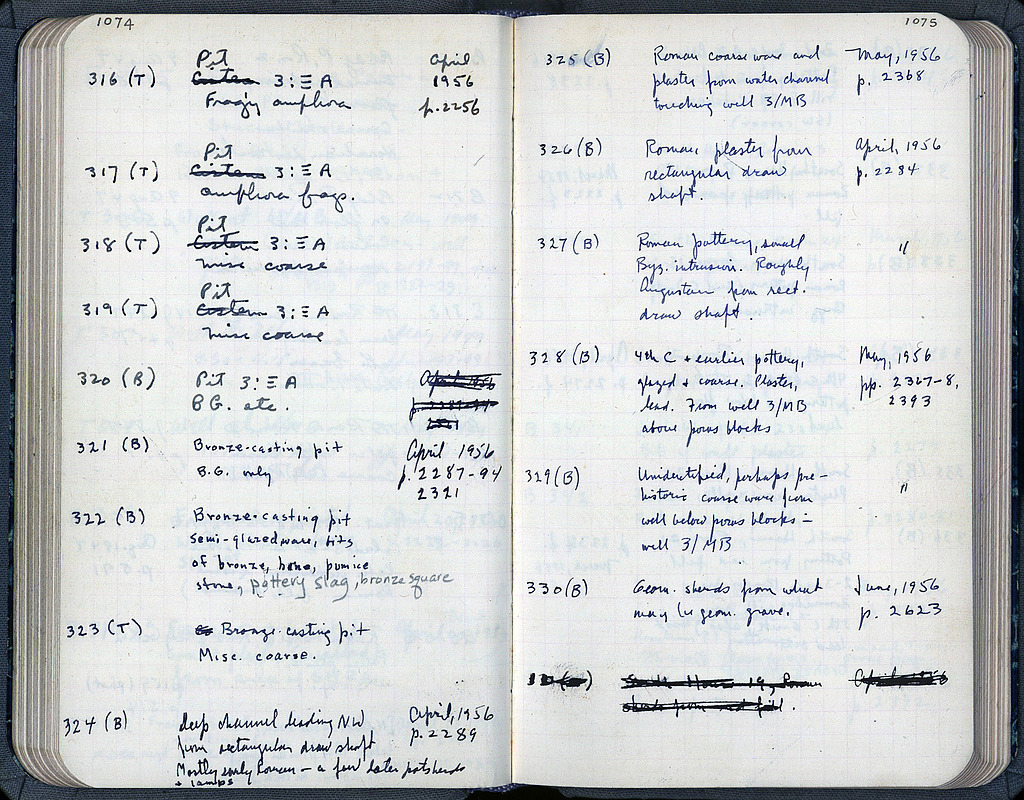 1074
Pit
316 (T) Cistern 3:Ξ A
Frag'y amphora
April
1956
p.2256
Pit
317 (T) Cistern 3:Ξ A
amphora frags.
Pit
318 (T) Cistern 3:Ξ A
misc coarse
Pit
319 (T) Cistern 3:Ξ A
misc coarse
320 (B) Pit 3:Ξ A
B.G. etc.
April 1956
321 (B) Bronze-casting pit
B.G. only
April 1956
p.2287-94
2321
322 (B) Bronze-casting pit
semi-glazed ware, bits
of bronze, bone, pumice
stone, pottery slag, bronze square
323 (T) Bronze-casting pit
Misc. coarse.
324 (B) deep channel leading NW
from rectangular draw shaft
Mostly early Roman – a few later potsherds
+ lamps
April, 1956
p.2289
1075
325 (B) Roman coarse ware and
plaster from water channel
touching well 3/MB
May, 1956
p. 2368
326 (B) Roman plaster from
rectangular draw
shaft.
April, 1956
p. 2284
327 (B) Roman pottery, small
Byz. intrusion. Roughly
Augustan from rect.
draw shaft.
"
328 (B) 4th C + earlier pottery,
glazed + coarse. Plaster,
lead. From well 3/MB
above poros blocks
May, 1956
pp. 2367-8,
2393
329 (B) Unidentified, perhaps pre-
historic coarse ware from
well below poros blocks –
well 3/MB
"
330 (B) Geom. sherds from what
may be geom. grave.
June, 1956
p. 2623
South House 19, Roman
sherds from red fill.
April, 1956